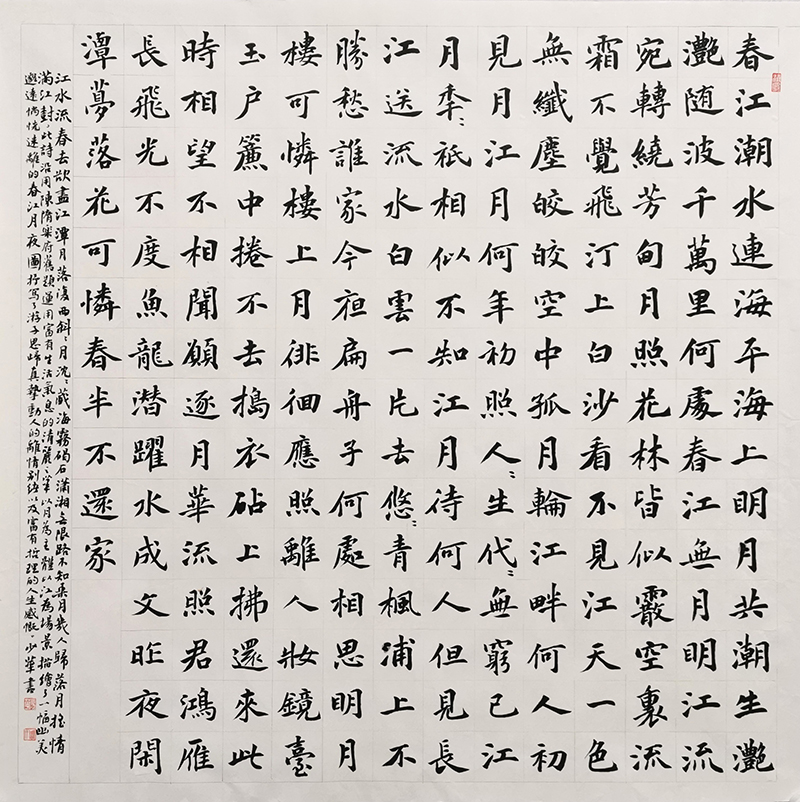 春江潮水連海平海上明月共潮生灩
灩随波千萬里何處春江無月明江流
宛轉繞芳甸月照花林皆似霰空裏流
霜不覺飛汀上白沙看不見江天一色
無纖塵皎皎空中孤月輪江畔何人初
見月江月何年初照人〻生代〻無窮已江
月季〻祇相似不知江月待何人但見長
江送流水白雲一片去悠〻青楓浦上不
勝愁誰家今夜扁舟子何處相思明月
樓可憐樓上月徘徊應照離人妝鏡臺
玉户簾中捲不去搗衣砧上拂還來此
時相望不相聞願逐月華流照君鴻雁
長飛光不度魚龍潜躍水成文昨夜閑
潭夢落花可憐春半不還家
江水流春去欲盡江潭月落復西斜〻月沈〻藏海霧碣石瀟湘無限路不知乘月幾人歸落月摇情
滿江封此詩沿用陳隋樂府舊題運用富有生活氣息的清麗之筆以月為主體以江為場景描繪了一幅幽美
邈遠惝恍迷離的春江月夜圖抒寫了游子思歸真摯動人的離情别緒以及富有哲理的人生感慨少華書